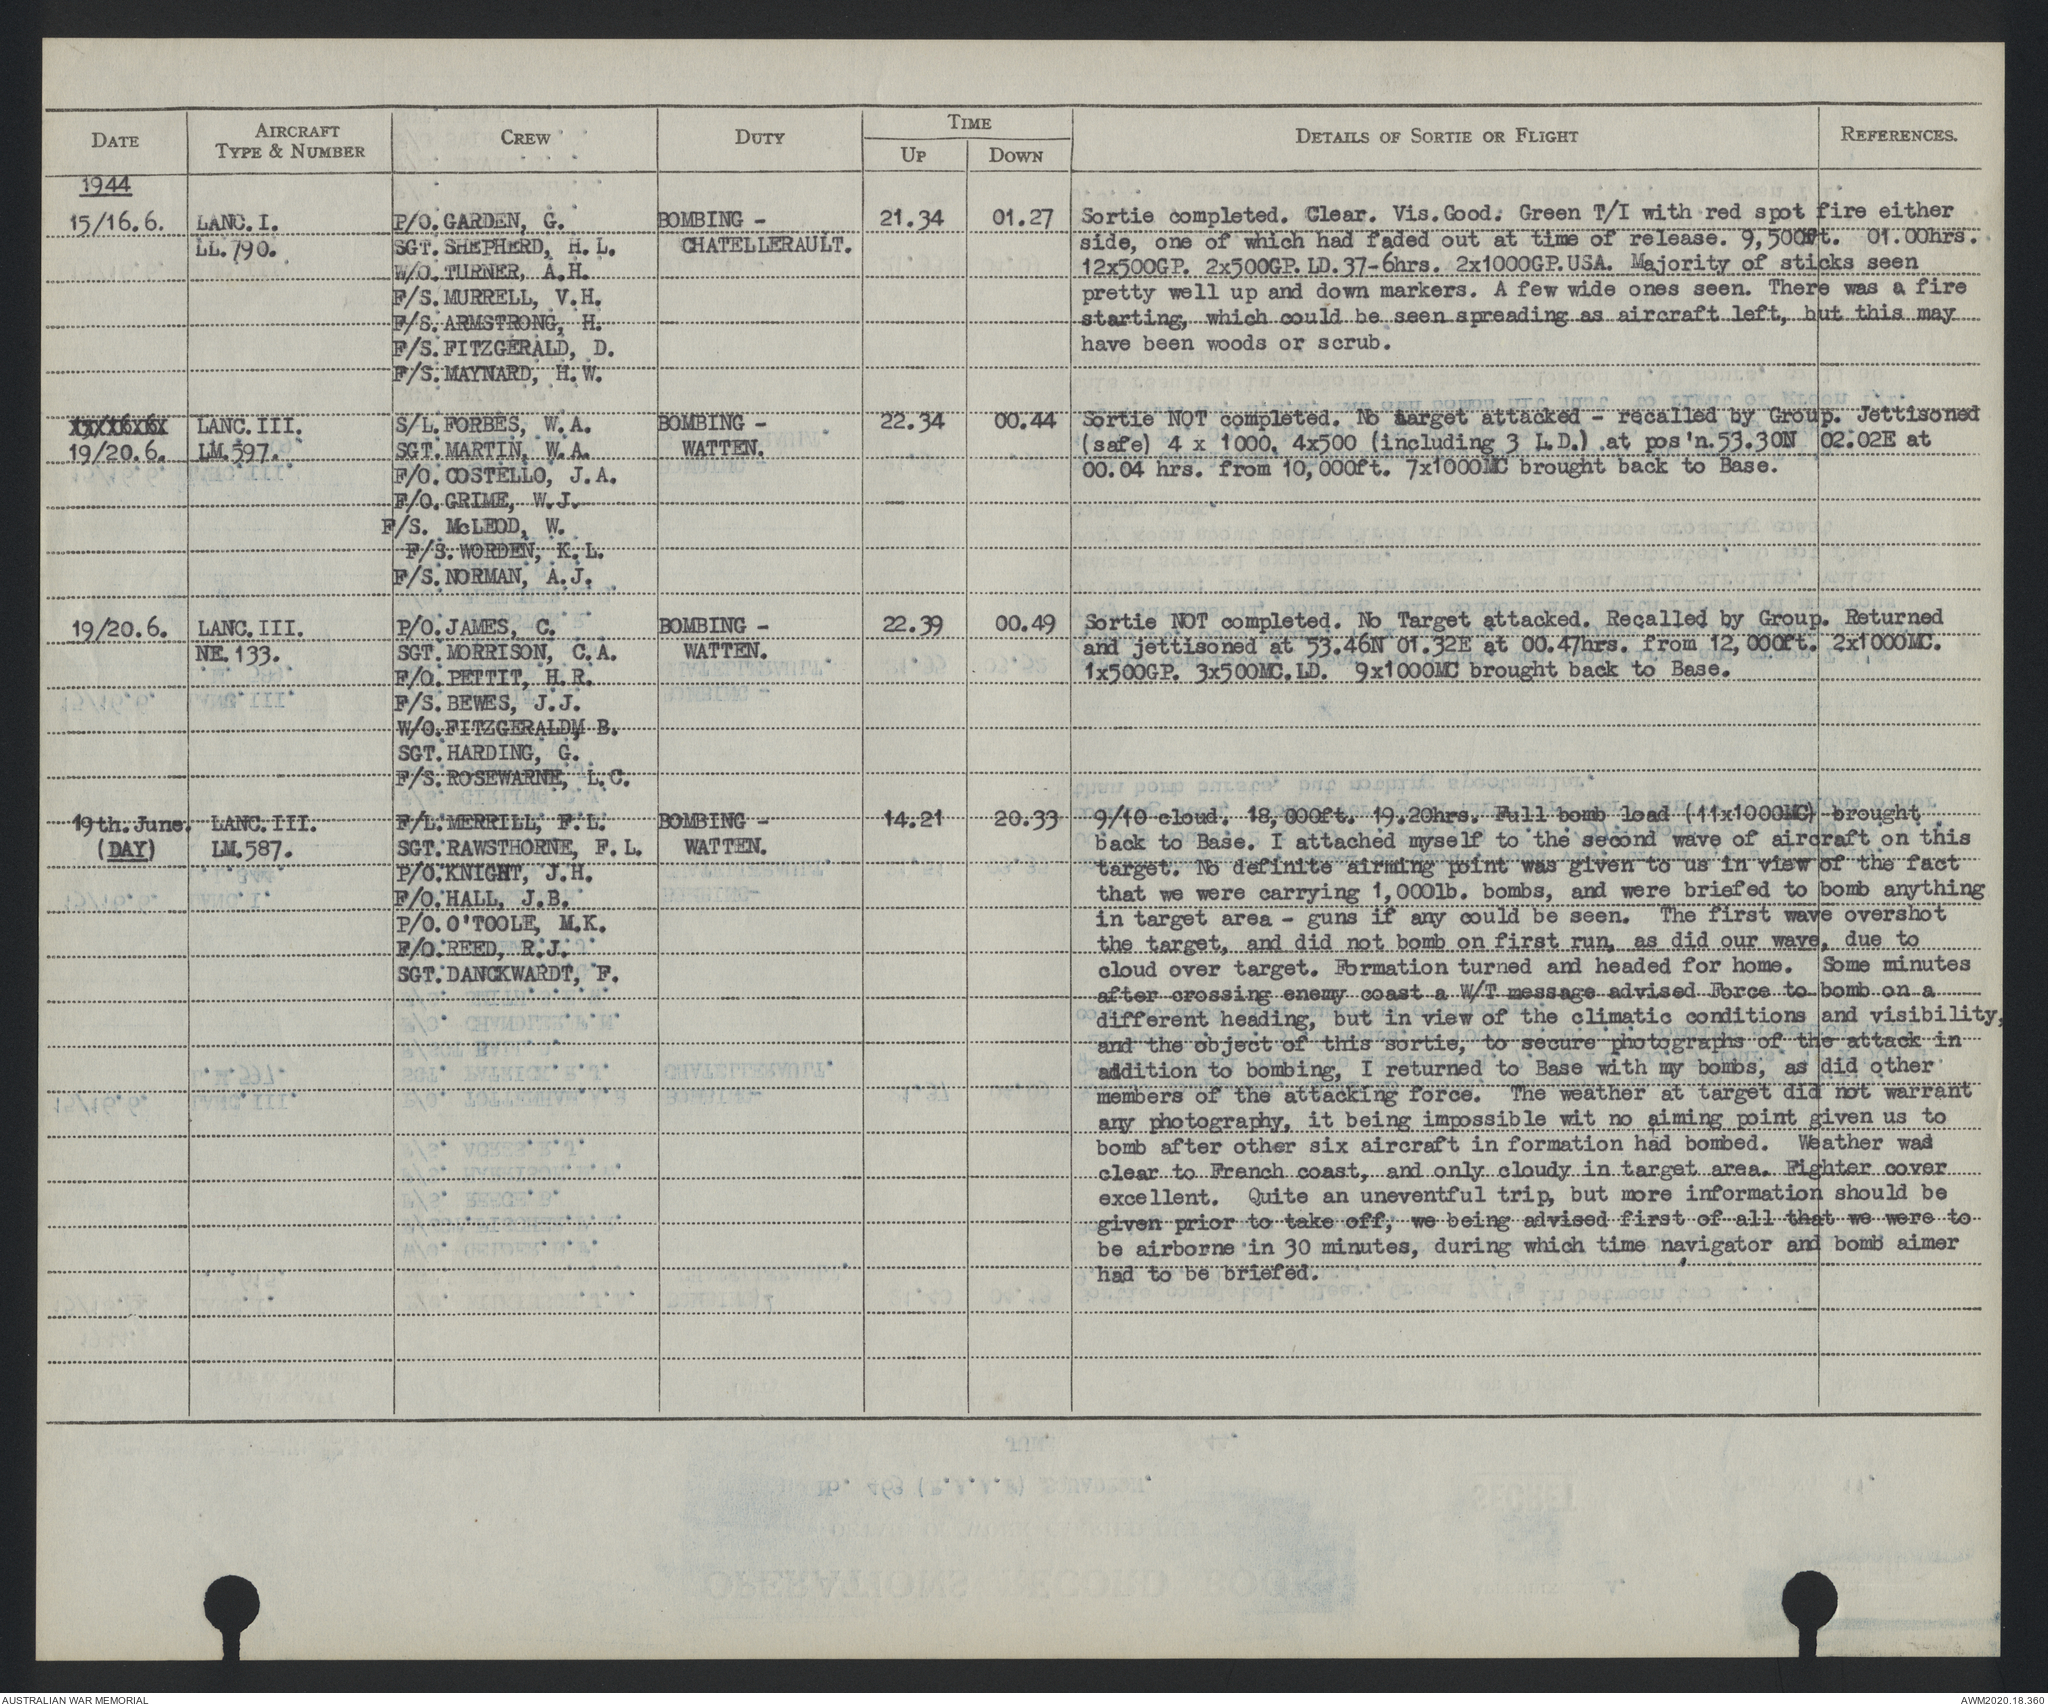 DATE AIRCRAFT TYPE & NUMBER CREW DUTY TIME UP DOWN DETAILS OF SORTIE OR FLIGHT REFERENCES.
1944
15/16.6. LANC.I. P/O. GARDEN, G. BOMBING - 21.34 01.27 Sortie completed. Clear. Vis.Good. Green T/I with red spot fire either
LL.790. SGT. SHEPHERD, H.L. CHATELLERAULT. side, one of which had faded out at time of release. 9,500ft. 01.00hrs.
W/O. TURNER, A.H. 12x500GP. 2x500GP.LD.37-6hrs. 2x1000GP.USA. Majority of sticks seen
F/S. MURRELL, V.H. pretty well up and down markers. A few wide ones seen. There was a fire
F/S. ARMSTRONG, H. starting, which could be seen spreading as aircraft left, but this may
F/S. FITZGERALD, D. have been woods or scrub.
F/S. MAYNARD, H.W.
LANC.III. S/L. FORBES, W.A. BOMBING - 22.34 00.44 Sortie NOT completed. No target attacked - recalled by Group. Jettisoned
19/20.6. LM.597. SGT. MARTIN, W.A. WATTEN. (safe) 4 x 1000, 4x500 (including 3 L.D.) at pos'n.53.30N 02.02E at
F/O. COSTELLO, J.A. 00.04 hrs. from 10,000ft. 7x1000MC brought back to Base.
F/O. GRIME, W.J.
F/S. McLEOD, W.
F/S. WORDEN, K.L.
F/S. NORMAN, A.J.
19/20.6. LANC.III. P/O. JAMES, C. BOMBING - 22.39 00.49 Sortie NOT completed. No Target attacked. Recalled by Group. Returned
NE.133. SGT. MORRISON, C.A. WATTEN. and jettisoned at 53.46N 01.32E at 00.47hrs. from 12,000ft. 2x1000MC.
F/O. PETTIT, H.R. 1x500GP. 3x500MC.LD. 9x1000MC brought back to Base.
F/S. BEWES, J.J.
W/O. FITZGERALDM B.
SGT. HARDING, G.
F/S. ROSEWARNE, L.C.
19th.June. LANC.III. F/L. MERRILL, F.L. BOMBING - 14.21 20.33 9/10 cloud. 18,000ft. 19.20hrs. Full bomb load (11x1000MC) brought
(DAY) LM.587. SGT. RAWSTHORNE, F.L. WATTEN. back to Base. I attached myself to the second wave of aircraft on this
P/O. KNIGHT, J.H. target. No definite airming point was given to us in view of the fact
F/O. HALL, J.B. that we were carrying 1,000lb. bombs, and were briefed to bomb anything
P/O. O'TOOLE, M.K. in target area - guns if any could be seen. The first wave overshot
F/O. REED, R.J. the target, and did not bomb on first run, as did our wave, due to
SGT. DANCKWARDT, F. cloud over target. Formation turned and headed for home. Some minutes
after crossing enemy coast a W/T message advised Force to bomb on a
different heading, but in view of the climatic conditions and visibility,
and the object of this sortie, to secure photographs of the attack in
addition to bombing, I returned to Base with my bombs, as did other
members of the attacking force. The weather at target did not warrant
any photography, it being impossible wit no aiming point given us to
bomb after other six aircraft in formation had bombed. Weather was
clear to French coast, and only cloudy in target area. Fighter cover
excellent. Quite an uneventful trip, but more information should be
given prior to take off, we being advised first of all that we were to
be airborne in 30 minutes, during which time navigator and bomb aimer
had to be briefed.
AUSTRALIAN WAR MEMORIAL AWM2020.18.360